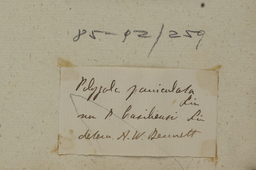 85-92/259
Polygala paniculata
Lin
non P. brasiliensi Lin
determ A.W. Bennett